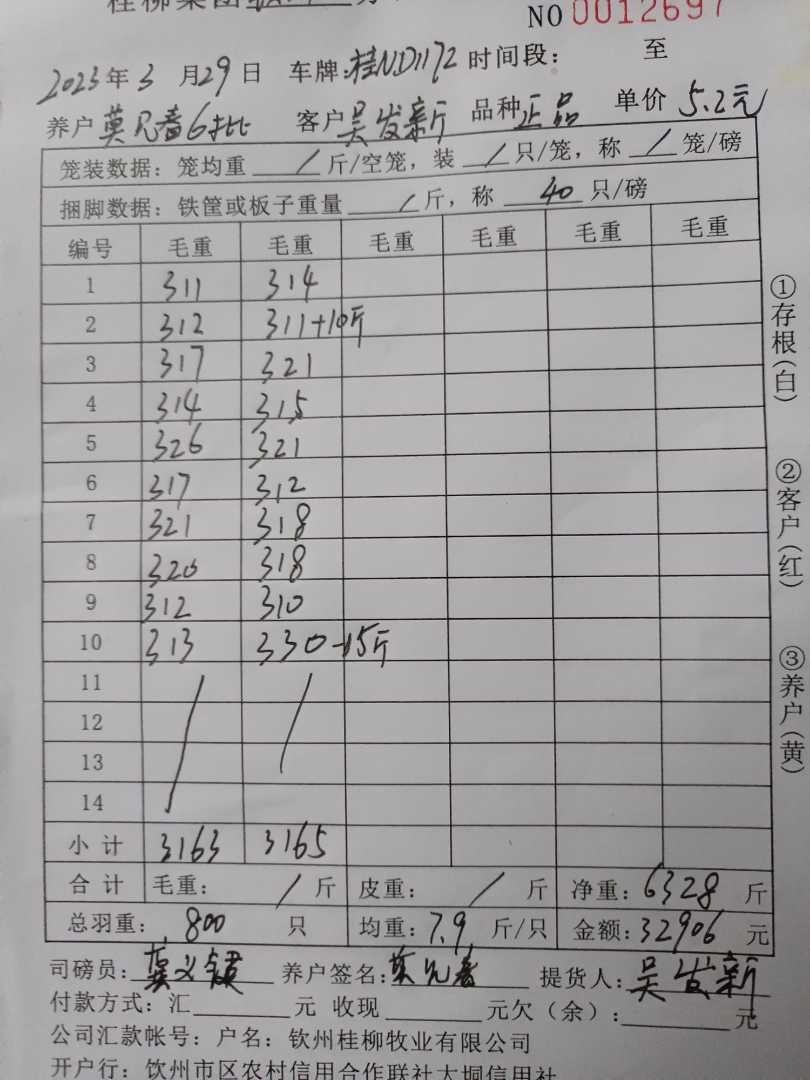 桂柳集团
NO 0012697
2023年3月29日 车牌:桂ND1172 时间段: 至
养户 莫兄春6批 客户 吴发新 品种 正品 单价 5.2元
笼装数据: 笼均重 / 斤/空笼, 装 / 只/笼, 称 / 笼/磅
捆脚数据: 铁筐或板子重量 / 斤, 称 40 只/磅
编号 毛重 毛重 毛重 毛重 毛重 毛重
1 311 314
2 312 311+10斤
3 317 321
4 314 315
5 326 321
6 317 312
7 321 318
8 320 318
9 312 310
10 313 330-15斤
11 / /
12
13
14
小计 3163 3165
合计 毛重: / 斤 皮重: / 斤 净重: 6328 斤
总羽重: 800 只 均重: 7.9 斤/只 金额: 32906 元
司磅员: 养户签名: 提货人: 吴发新
付款方式: 汇 元 收现 元欠(余): 元
公司汇款帐号: 户名: 钦州桂柳牧业有限公司
开户行: 钦州市区农村信用合作联社大垌信用社
①存根(白)
②客户(红)
③养户(黄)